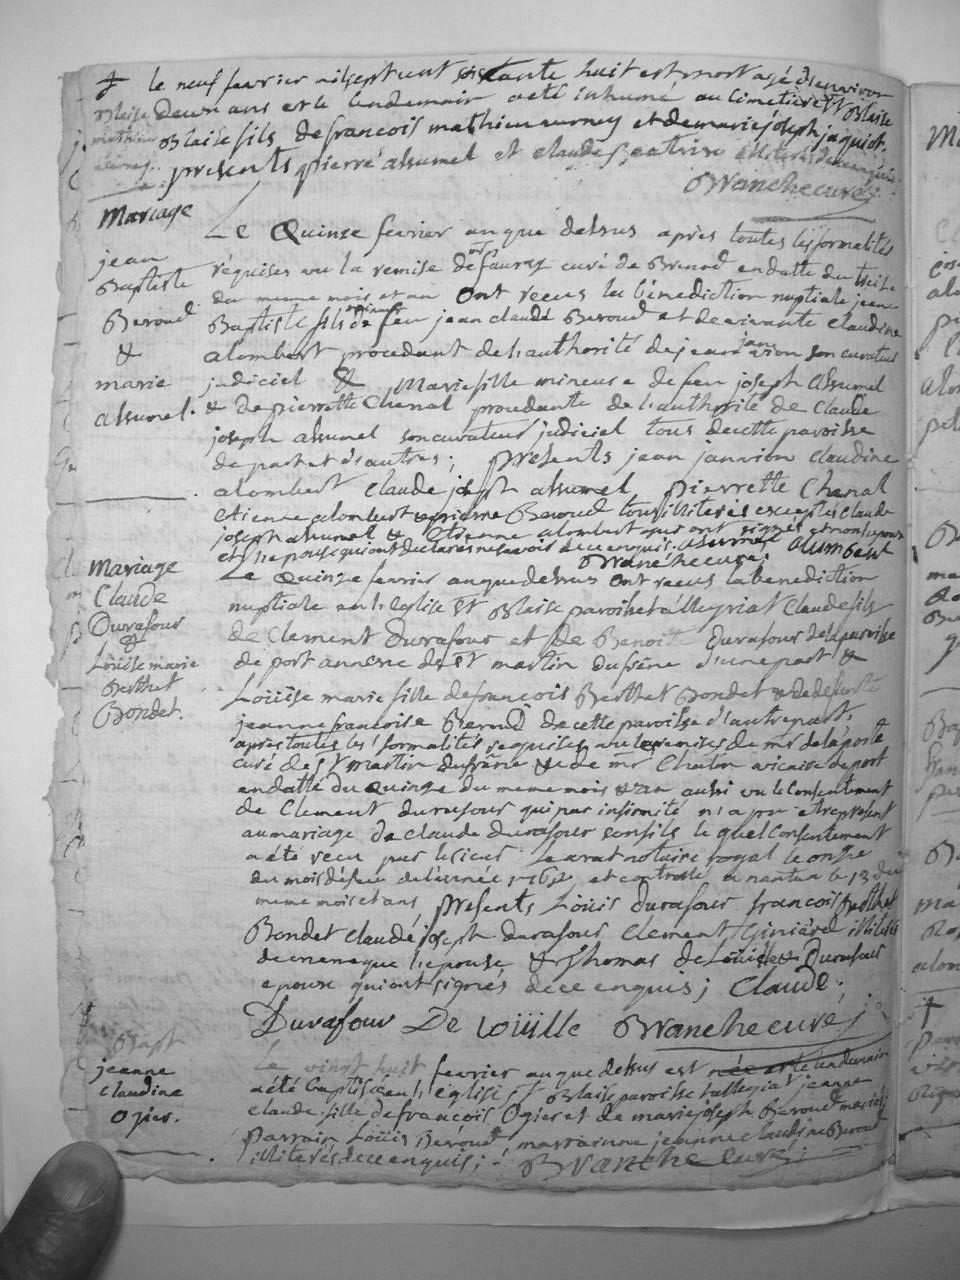 ✝ le neuf fevrier mil sept cent soixante huit est mort agé d'environ
Blaise deux ans et le lendemain a eté inhumé au cimetiere St Blaise
mathieu Blaise fils de francois mathieu et de marie joseph jaquiot.
presents pierre assumel et claude illiterés de ce enquis
Blanche curé;
Mariage
Le Quinze fevrier an que dessus après toutes les formalités
jean
requises vu la remise de mr favraz curé de Brenod en datte du treize
Baptiste
du meme mois et an ont recus la bénediction nuptiale jean
Beroud
Baptiste fils mineur de feu jean claude Beroud et de vivante claudine
&
alombert procedant de l'authorité de jean janvion son curateur
marie
judiciel & Marie fille mineure de feu joseph assumel
assumel.
& de pierrette Chenal procedante de l'authorité de Claude
joseph assumel son curateur judiciel tous de cette paroisse
de part et d'autres; presents jean janvion claudine
alombert claude joseph assumel pierrette Chenal
etienne alombert & pierre Beroud tous illiterés exceptés claude
joseph assumel & Etienne alombert qui ont signés et non l'epoux
et l'epouse qui ont declarés ne savoir de ce enquis. assumel alumbert
Blanche curé;
Mariage
Le Quinze fevrier an que dessus ont recus la benediction
Claude
nuptiale en l'eglise St Blaise paroisse d'alleyriat Claude fils
Durafour
de Clement Durafour et de Benoit Durafour de la paroisse
&
Loüise marie
de port annexe de St martin du frêne d'une part &
Berthet
Bondet.
Loüise marie fille de francois Berthet Bondet & de defunte
jeanne francoise Bernod de cette paroisse d'autre part,
après toutes les formalités requises vu les remises de mr delaposte
curé de St martin du frêne & de mr Chaton vicaire de port
en datte du Quinze du meme mois & an aussi vu le Consentement
de Clement durafour qui par infirmité n'a pu etre present
au mariage de claude durafour son fils le quel Consentement
a été recu par le sieur notaire royal le onze
du mois de fevrier de l'année 1768 et controllé a nantua le 13 du
meme mois et ans presents Loüis durafour francois Berthet
Bondet claude joseph durafour Clement illiterés
de meme que l'epouse & Thomas de Loüille & Durafour
epoux qui ont signés de ce enquis; Claude.
Durafour De Loüille Blanche curé;
Bapt
Le vingt huit fevrier an que dessus est née et le lendemain
jeanne
a été baptisée en l'église St Blaise paroisse d'alleyriat jeanne
claudine
claude fille de francois Ogier et de marie joseph Beroud mariés
Ogier.
Parrain Loüis Beroud marrainne jeanne claudine Beroud
illiterés de ce enquis; Blanche curé;